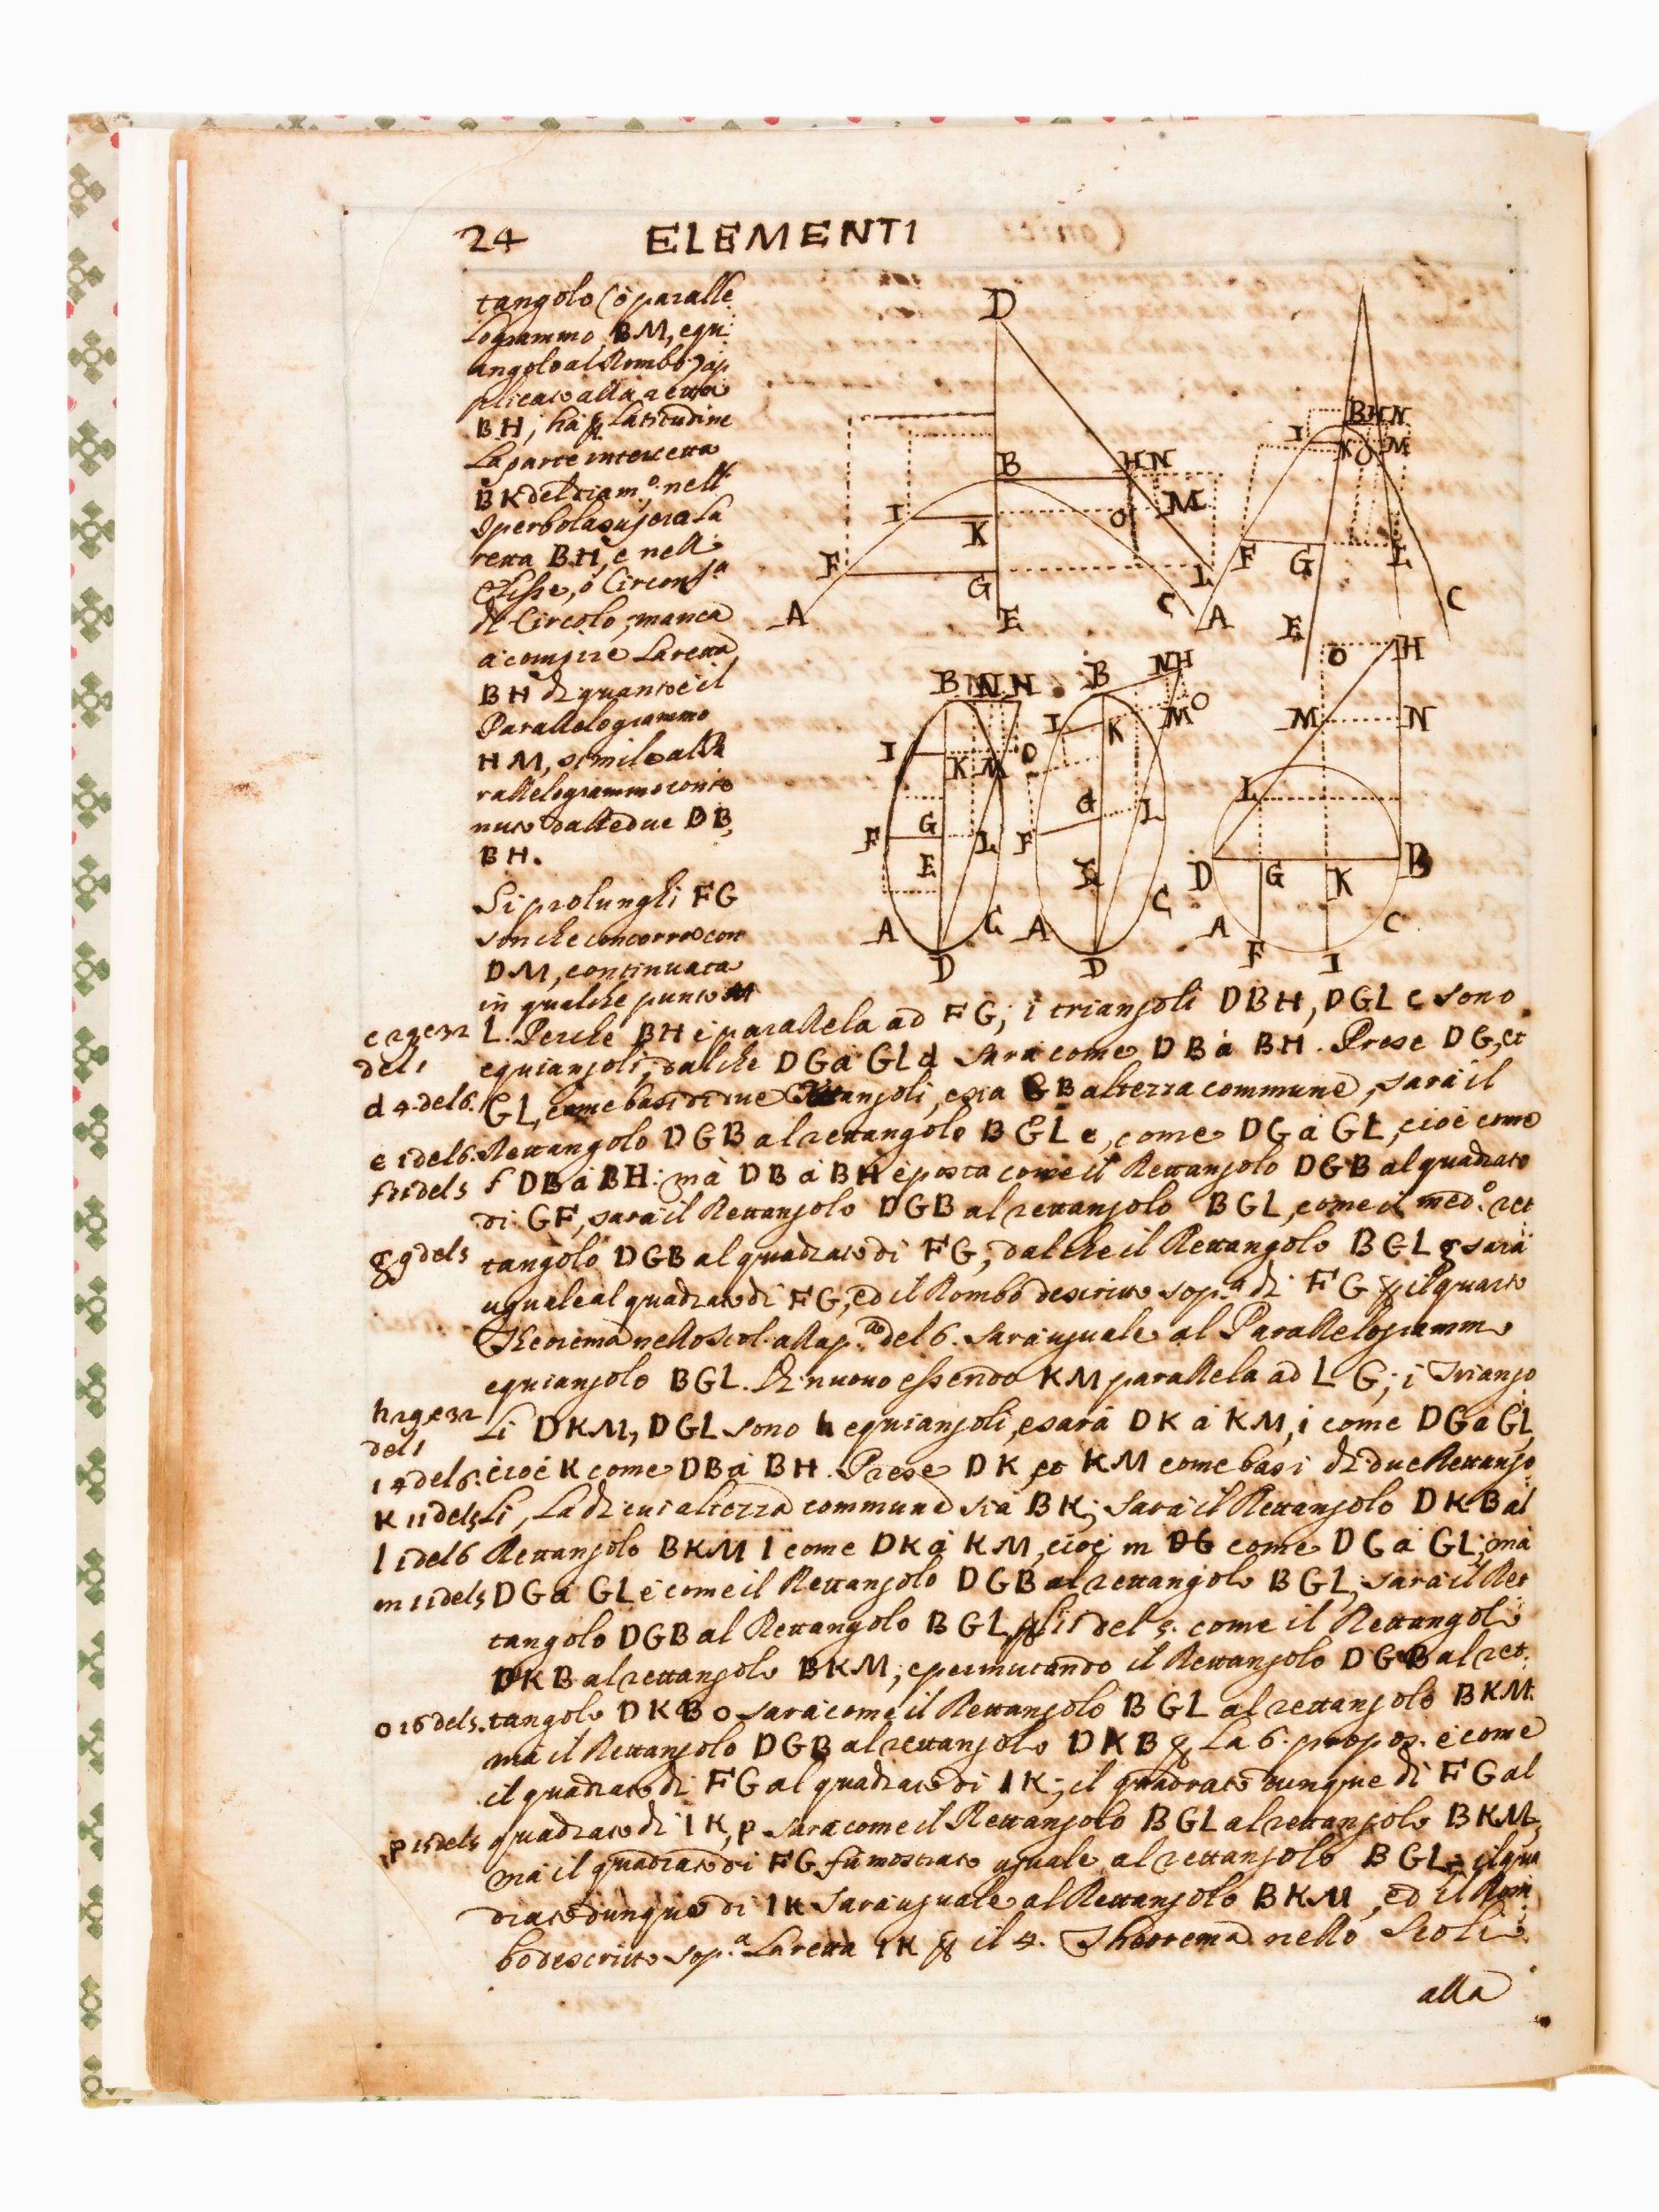 24 ELEMENTI
tangolo (ò paralle
logrammo BM, equi
angolo al Rombo) ap
plicato alla retta
BH; hà ꝑ Latitudine
La parte intercetta
BK del diam.o; nell'
Iperbola supera La
retta BH, e nell'
Elisse, ò Circonf.a
di Circolo, manca
à compire La retta
BH di quanto è il
Parallelogrammo
HM, simile al Pa
rallelogrammo conte
nuto dalle due DB,
BH.
Si prolunghi FG
sin che concorra con
DM, continuata
in qualche punto
L. Perche BH è parallela ad FG; i triangoli DBH, DGL c sono
equiangoli, dalche DG à GL d sarà come DB à BH. Prese DG, et
GL, come basi di due Rettangoli, e sia GB altezza commune, sarà il
Rettangolo DGB al rettangolo BGL e, come DG à GL, cioè come
f DB à BH: mà DB à BH è posta come il Rettangolo DGB al quadrato
di GF, sarà il Rettangolo DGB al rettangolo BGL, come il med.o ret
tangolo DGB al quadrato di FG; dalche il Rettangolo BGL g sarà
uguale al quadrato di FG, ed il Rombo descritto sop.a di FG ꝑ il quarto
Theorema nello Scol. alla p.a del 6. sarà uguale al Parallelogrammo
equiangolo BGL. Di nuovo essendo KM parallela ad LG; i Triango
li DKM, DGL sono h equiangoli, e sarà DK à KM, i come DG à GL,
cioè K come DB à BH. Prese DK, et KM come basi di due Rettango
li, La di cui altezza commune sia BK; sarà il Rettangolo DKB al
Rettangolo BKM l come DK à KM, cioè m DG come DG à GL; mà
DG à GL è come il Rettangolo DGB al rettangolo BGL; sarà il Ret
tangolo DGB al Rettangolo BGL, ꝑ li 11 del 5. come il Rettangolo
DKB al rettangolo BKM; e permutando il Rettangolo DGB al ret.
tangolo DKB o sarà come il Rettangolo BGL al rettangolo BKM.
mà il Rettangolo DGB al rettangolo DKB ꝑ La 6. propos. è come
il quadrato di FG al quadrato di IK; il quadrato dunque di FG al
quadrato di IK, p sarà come il Rettangolo BGL al rettangolo BKM;
mà il quadrato di FG fù mostrato uguale al rettangolo BGL; il qua
drato dunque di IK sarà uguale al Rettangolo BKM, ed il Rom
bo descritto sop.a La retta IK ꝑ il 4. Theorema nello Scolio
alla
c 29 e 32
del 1
d 4. del 6.
e 1 del 6.
f 11 del 5
g 9 del 5
h 29 e 32
del 1
i 4 del 6.
K 11 del 5
l 1 del 6
m 11 del 5
o 16 del 5.
p 11 del 5
D
B H N
I K O M
F G L
A E C
B H N
I K O M
F G L
A E C
B N H
I K M O
F G L
E
A C
D
B N H
I K M O
F G L
E
A C
D
O H
M N
L
D G K B
A F I C